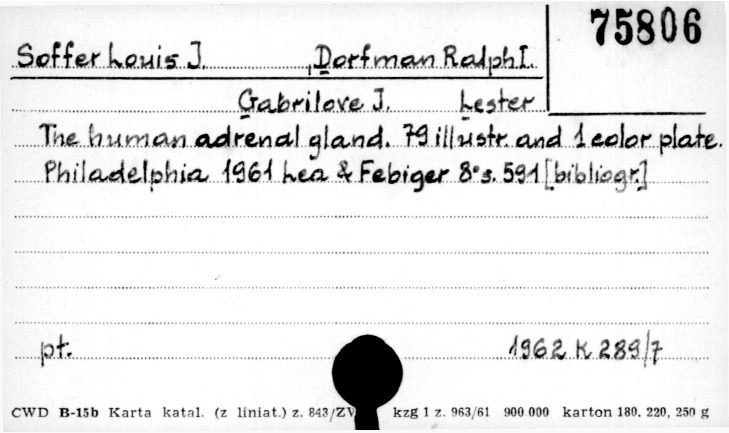 75806
Soffer Louis J. , Dorfman Ralph I.
Gabrilove J. Lester
The human adrenal gland. 79 illustr. and 1 color plate.
Philadelphia 1961 Lea & Febiger 8° s. 591 [bibliogr.]
pt. 1962 K 289/7
CWD B-15b Karta katal. (z liniat.) z. 843/ZV kzg 1 z. 963/61 900 000 karton 180, 220, 250 g